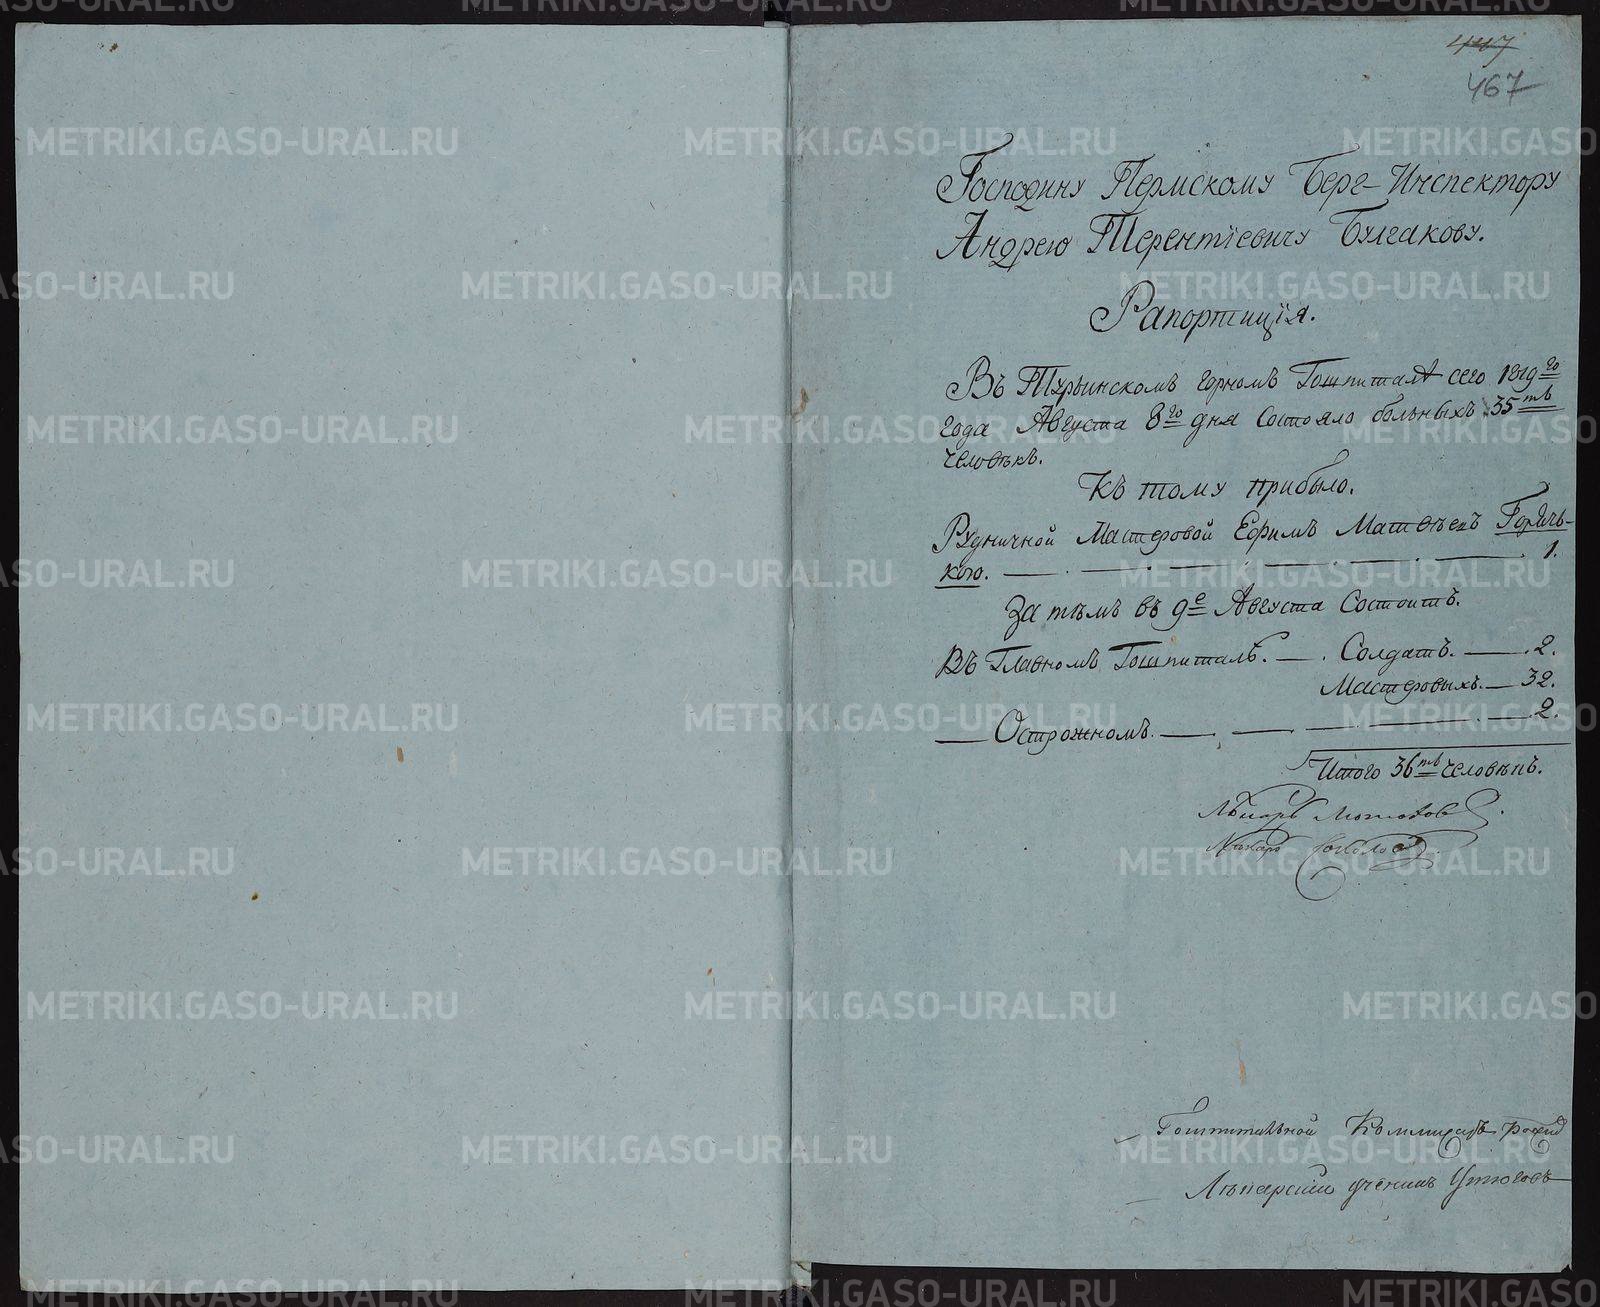 447
467
Господину Пермскому Берг-Инспектору
Андрею Терентіевичу Булгакову.
Рапортиція.
Въ Турьинскомъ горномъ Гошпиталѣ сего 1819го
года Августа 8го дня состояло больныхъ 35ть
человѣкъ.
Къ тому прибыло.
Рудничной Мастеровой Ефимъ Матвѣевъ Горячь-
кою. 1.
За тѣмъ въ 9е Августа Состоитъ.
Въ Главномъ Гошпиталѣ. Солдатъ. 2.
Мастеровыхъ. 32.
Острожномъ. 2.
Итого 36ть человѣкъ.
Лѣкарь
Лѣкарь Соколовъ
Гошпитальной Коммисаръ
Лѣкарскій ученикъ Утюговъ
METRIKI.GASO-URAL.RU